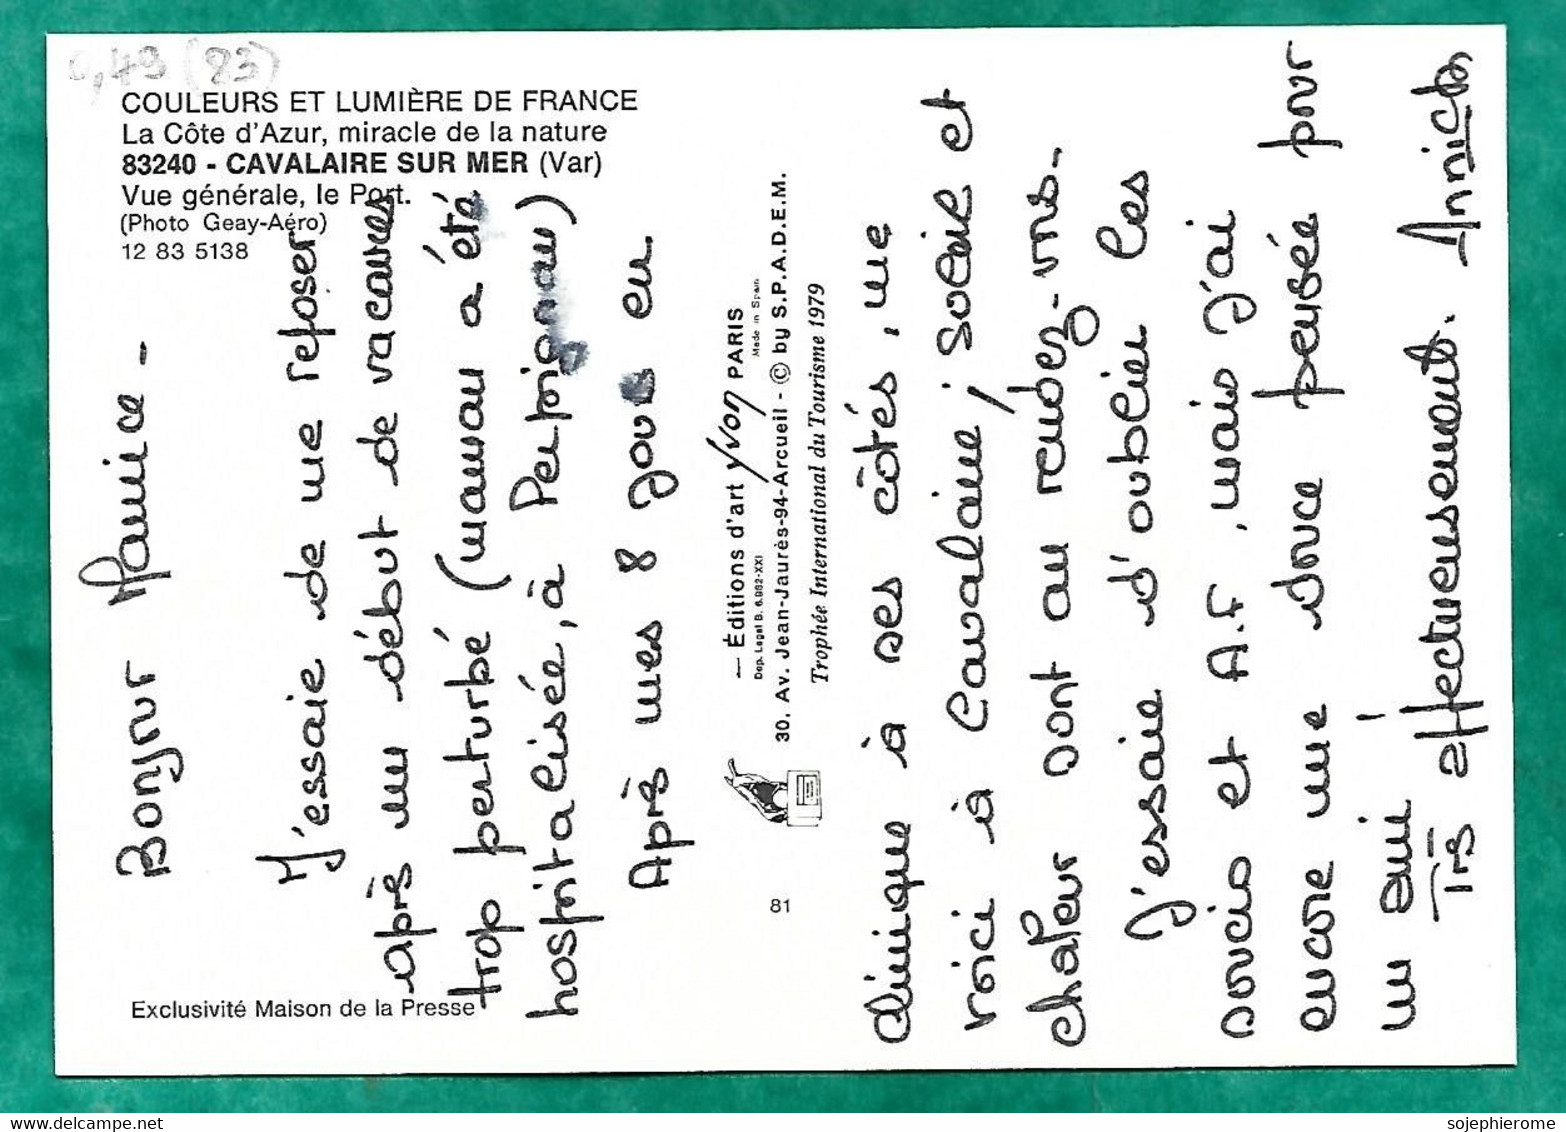 0,49 (83)
COULEURS ET LUMIÈRE DE FRANCE
La Côte d'Azur, miracle de la nature
83240 - CAVALAIRE SUR MER (Var)
Vue générale, le Port.
(Photo Geay-Aéro)
12 83 5138
Exclusivité Maison de la Presse
Bonjour Mamice -
J'essaie de me reposer
après un début de vacances
trop perturbé (maman a été
hospitalisée, à Perpignan)
Après mes 8 jours en
— Éditions d'art yvon PARIS
Dep. Legal B. 6.982-XXI
Made in Spain
30, Av. Jean-Jaurès-94-Arcueil - © by S.P.A.D.E.M.
Trophée International du Tourisme 1979
81
clinique à ses côtés, me
voici à Cavalaire ; soleil et
chaleur sont au rendez-vous.
J'essaie d'oublier les
soucis et A.F, mais j'ai
encore une douce pensée pour
un ami !
Très affectueusement. Annick
sojephierome